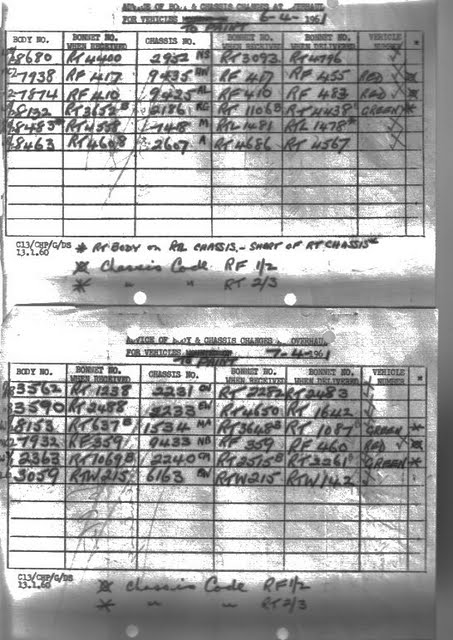 ADVICE OF BODY & CHASSIS CHANGES AT OVERHAUL
FOR VEHICLES 6-4-1961
TO PAINT
BODY NO. BONNET NO. WHEN RECEIVED CHASSIS NO. BONNET NO. WHEN RECEIVED BONNET NO. WHEN DELIVERED VEHICLE NUMBER
8680 RT4400 2952 NS RT3093 RT4796 ✓
7938 RF417 9435 RF417 RF455 RED ✓
7874 RF410 9425 AL RF410 RF483 RED ✓
8132 RT3652 2186 RT1106 RT4438 GREEN *
8483 RT4558 7418 M RTL1481 RTL1478 ✓
8463 RT4608 2607 A RT4686 RT4567 ✓
C13/CHP/G/DS
13.1.60
* RT BODY ON RTL CHASSIS – SHORT OF RT CHASSIS
Chassis Code RF 1/2
* " " RT 2/3
ADVICE OF BODY & CHASSIS CHANGES OVERHAUL
FOR VEHICLES 7-4-1961
TO PAINT
BODY NO. BONNET NO. WHEN RECEIVED CHASSIS NO. BONNET NO. WHEN RECEIVED BONNET NO. WHEN DELIVERED VEHICLE NUMBER
3562 RT1238 2231 RT2282 RT2483 ✓
3590 RT2488 3233 RT4650 RT1642 ✓
8153 RT637 1534 RT3648 RT1087 GREEN *
7932 RF359 9433 NB RF359 RF460 RED ✓
2363 RT1069 2240 RT2515 RT2261 GREEN *
3059 RTW215 6163 RTW215 RTW142 ✓
C13/CHP/G/DS
13.1.60
Chassis Code RF 1/2
* " " RT 2/3